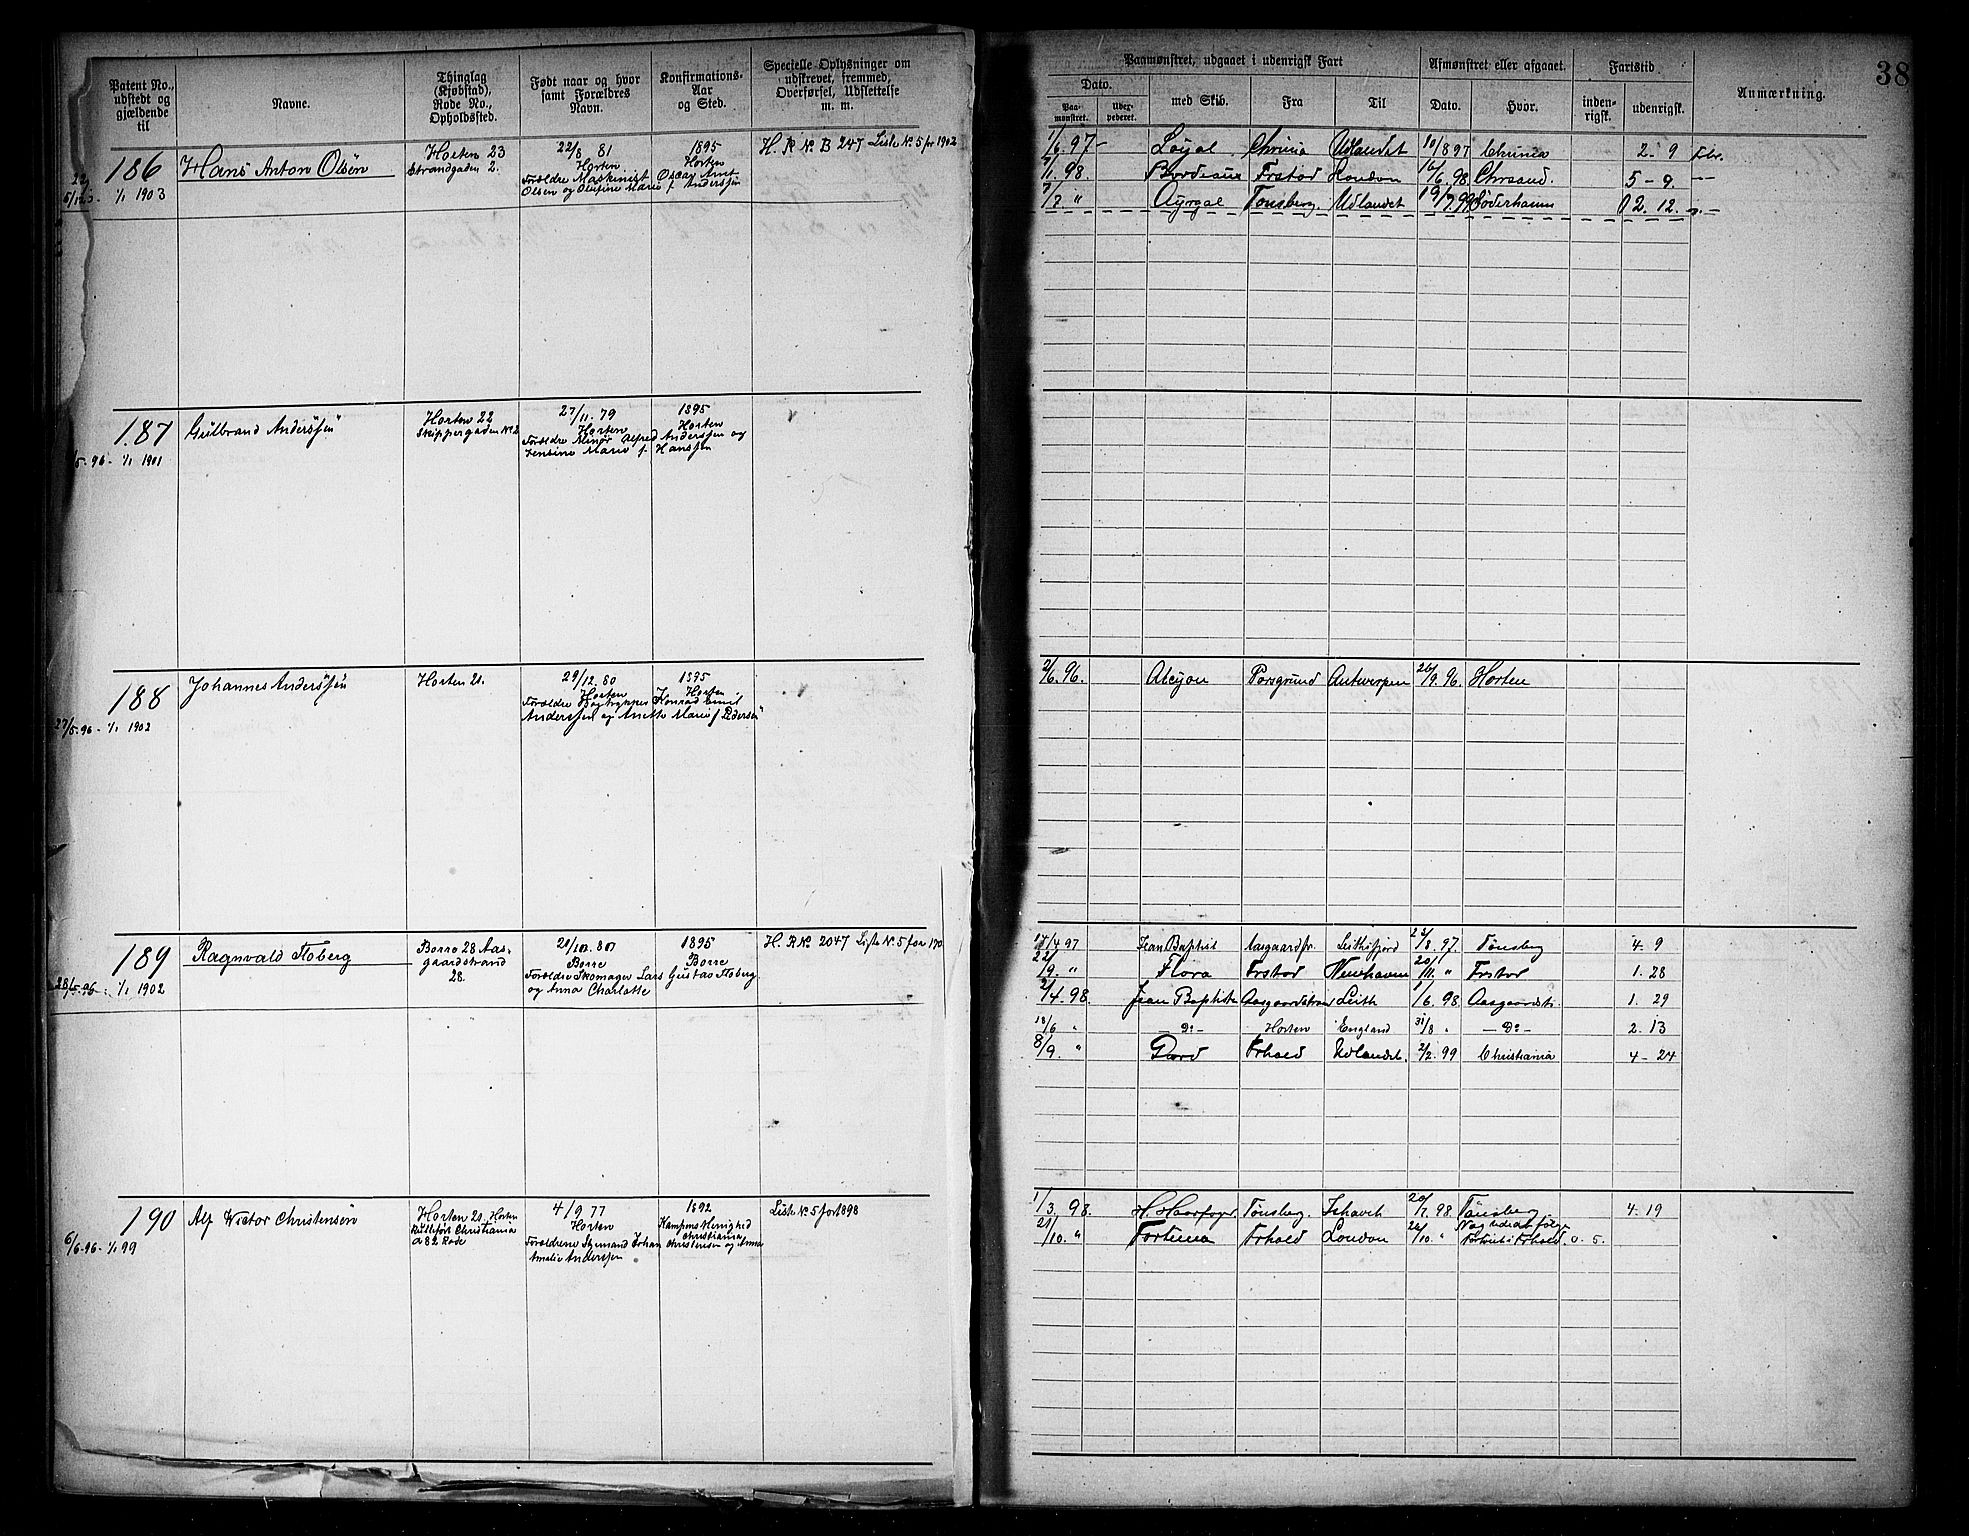 38
Patent No., udstedt og gjældende til
Navne.
Thinglag (Kjøbstad), Rode No., Opholdssted.
Født naar og hvor samt Forældres Navn.
Konfirmations-Aar og Sted.
Specielle Oplysninger om udskrevet, fremmed, Overførsel, Udslettelse m. m.
Paamønstret, udgaaet i udenrigsk Fart
Dato.
Paa-mønstret.
med Skib.
Fra
Til
Afmønstret eller afgaaet.
Dato.
Hvor.
Fartstid
inden-rigsk.
udenrigsk.
Anmærkning.
186
1/1 1903
Hans Anton Olsen
Horten 23
Strandgaden 2.
22/8 81
Horten
1895
Horten
Forældre Maskinist Oscar Ant.
Olsen og Olufine Marie f. Anderssen
H. R No B 247 Liste No 5 for 1902
1/6 97 Loyal Chrinia Udlandet 10/8 97 Chrinia 2-9
1. 98. Bordeaux Frstad London 6. 98. Chrsand. 5-9.
Tønsberg. Udlandet Søderhamn 2. 12.
187
5. 96 - 1/1 1901
Gulbrand Anderssen
Horten 22
Skippergaden No 2
27/11. 79
Horten
1895
Horten
Forældre Minør Alfred Anderssen og
Jensine Marie f. Hanssen
188
27/5. 96 - 1/1 1902
Johannes Anderssen
Horten 21.
29/12. 80
Horten
1895
Horten
Forældre Bogtrykker Konrad Emil
Anderssen og Anette Marie f. Pedersen
2/6. 96. Alcyon Porsgrund Antwerpen 26/9. 96. Horten
189
28/5. 96 - 1/1 1902
Ragnvald Floberg
Borre 28 Aas-
gaardstrand
28.
Borre
1895
Borre
Forældre Skomager Lars Gustav Floberg
og Anna Charlotte
H. R No 2047 Liste No 5 for
14/4 97 Jean Baptist 8. 97. Tønsberg 4. 9
22/9. " Flora Frstad Newhaven 20/11. " Frstad 1. 28
2/4. 98. Jean Baptiste Aasgaardstrand Leith 1/6. 98. Aasgaardstr. 1. 29
18/6 " - Do - Horten England 31/8 " - Do - 2. 13
8/9. " Frhald Udlandet 2/2. 99 Christiania 4-24
190
6/6. 96 - 1/1 99
Alf Victor Christensen
Horten 21. Horten
Christiania
82 Rode
4/9 77
Horten
1892
Kampens Menighed
Christiania
Forældrene Sigmund Johan Christensen og Anna
Amalie Anderssen
Liste No 5 for 1898
1/3. 98. Tønsberg. Ishavet 20/7. 98. Tønsberg 4. 19
21/10. " Fortuna Frhald London 26/10. " Frhald. 0. 5.